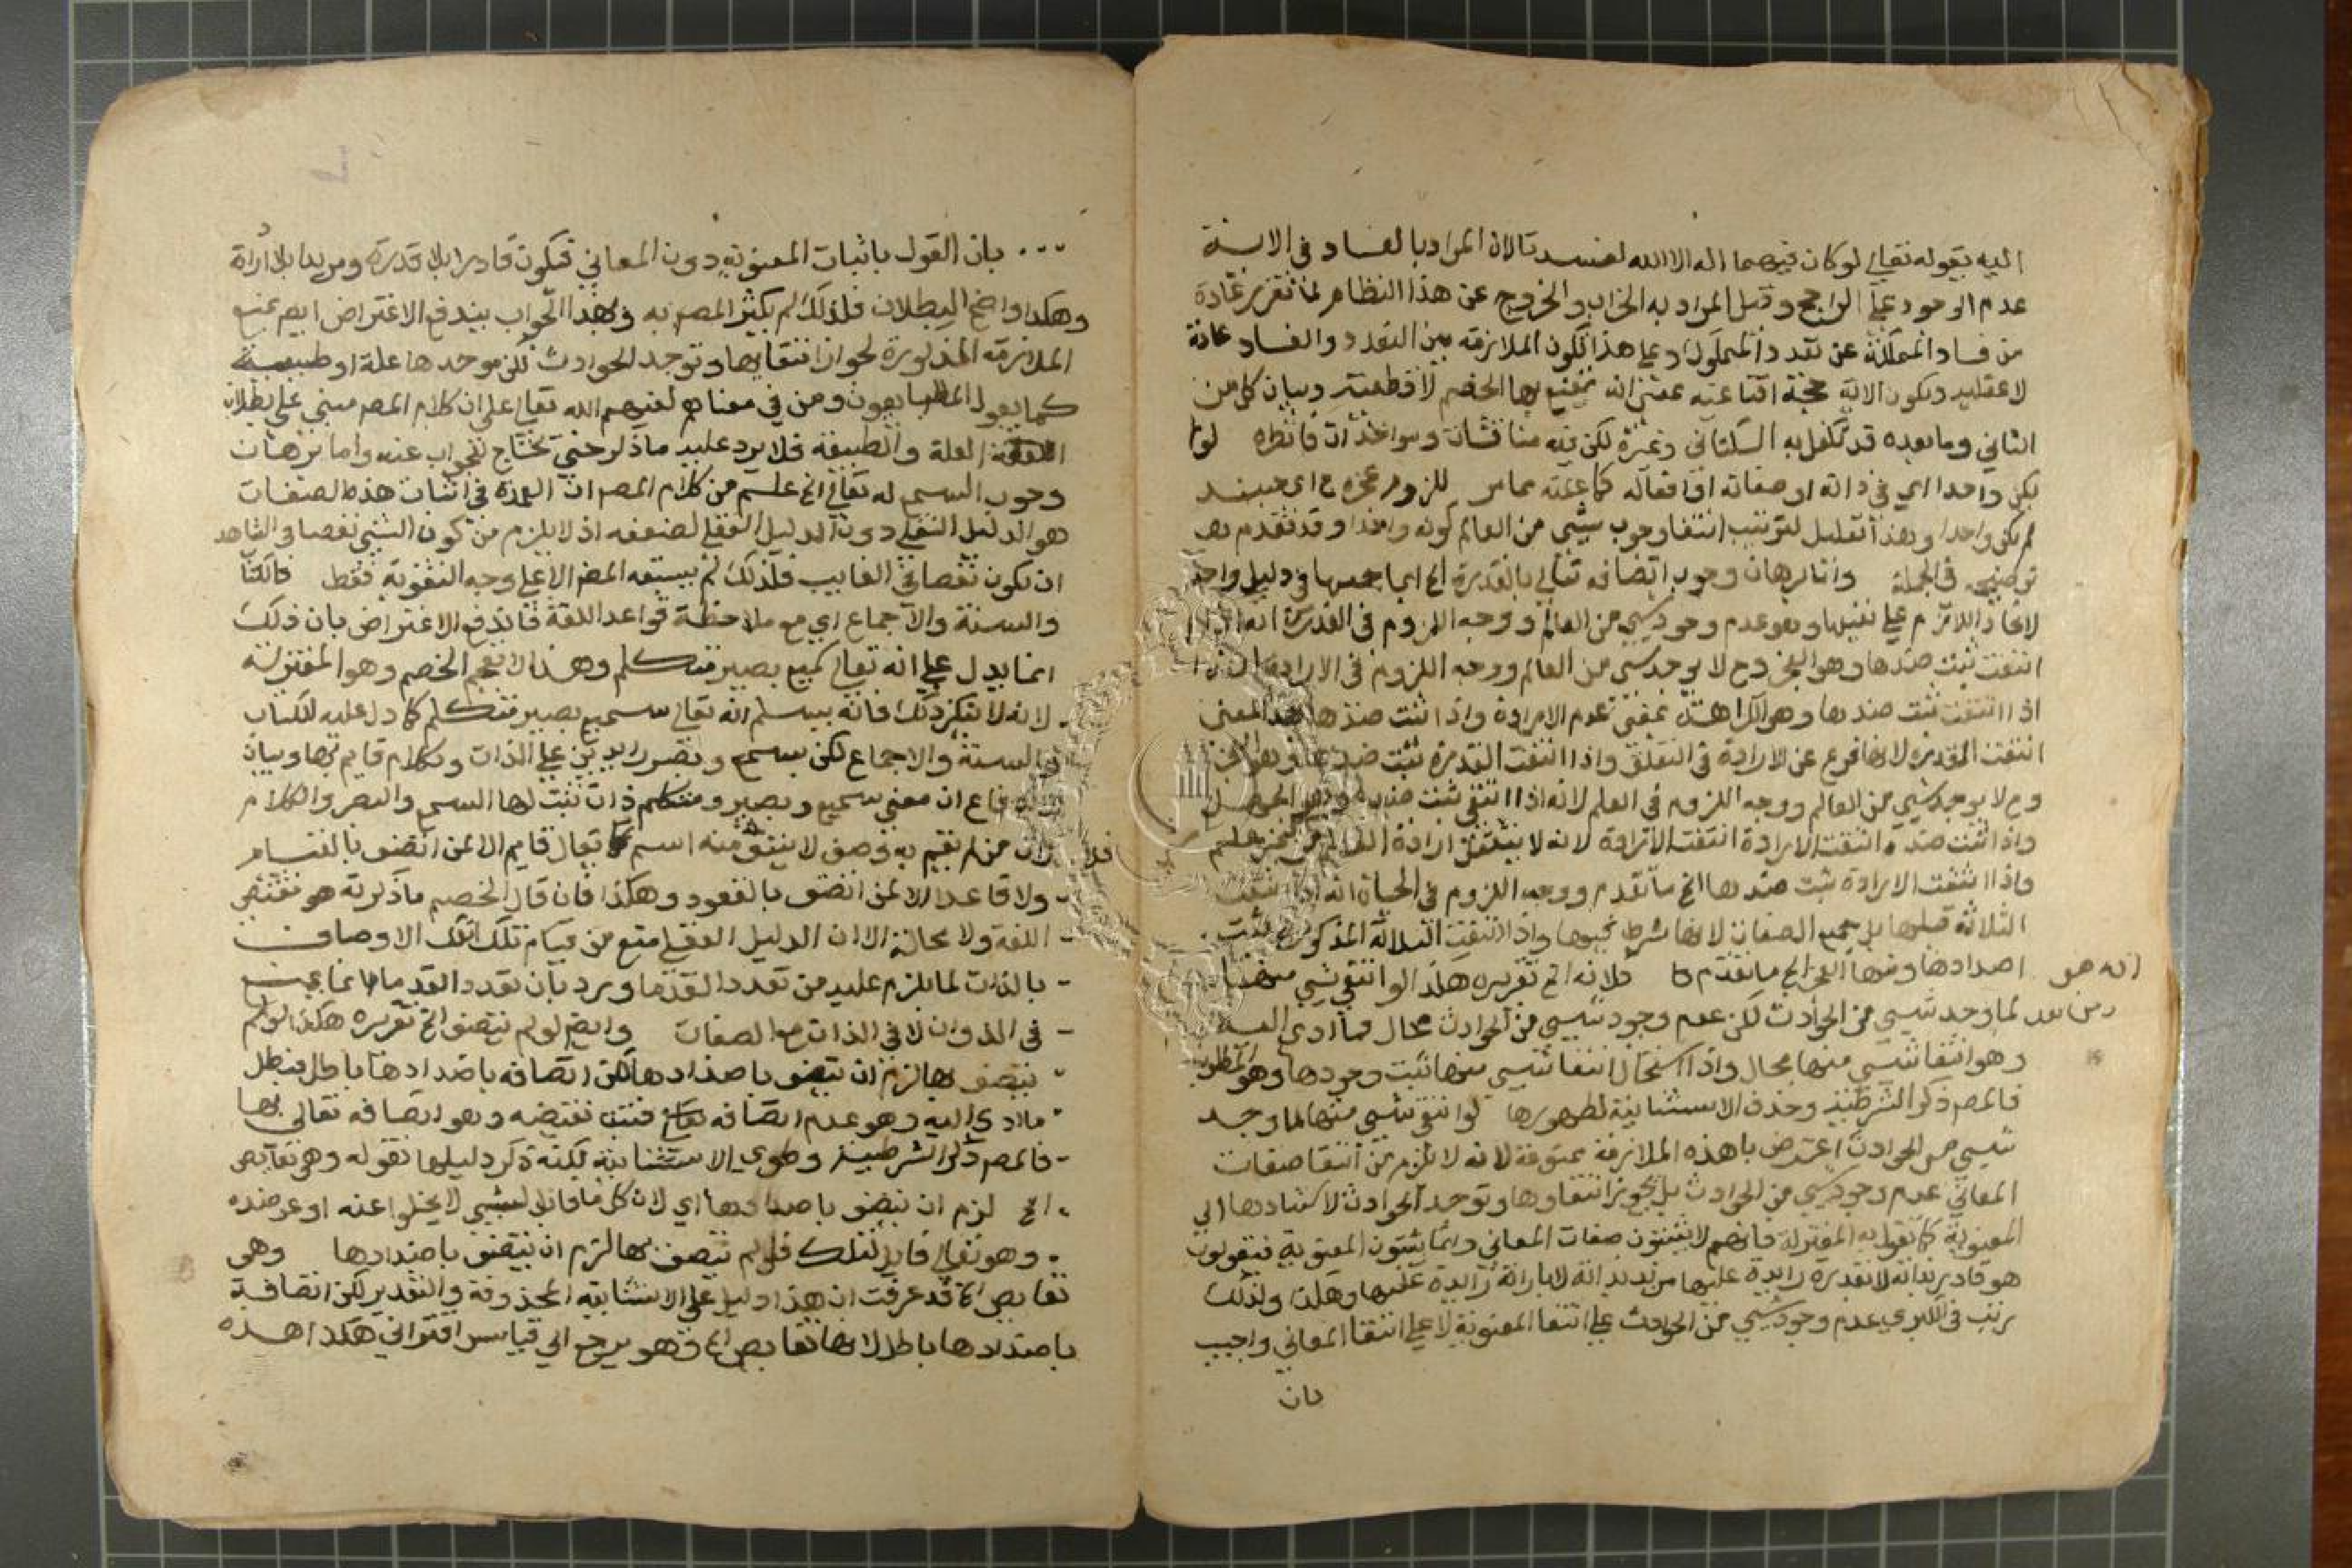 اليه بقوله تعالي لو كان فيهما اله الا الله لفسدتا لان المراد بالفساد في الاية
عدم الوجود علي الراجح وقيل المراد به الخراب والخروج عن هذا النظام لما تقرر عادة
من فساد المملكة عن تعدد المملوك وعلي هذا تكون الملازمة بين التعدد والفساد عادة
لا عقلية وتكون الاية حجة اقناعية بمعني انه يقنع بها الخصم لا قطعية وبيان كل من
الثاني وما بعده قد تكفل به السكتاني وغيره لكن فيه مناقشات ومواخذات فانظره لو لم
يكن واحدا اي في ذاته او صفاته او افعاله كما علمته مما مر للزوم عجزه ح اي حينيذ
لم يكن واحدا وهذا تعليل لترتب انتفا وجوب شي من العالم كونه واحدا وقد تقدم
توضيحه في الجملة واما برهان وجوب اتصافه تعالي بالقدرة الخ انما جمعها في دليل واحد
لاتحاد اللازم علي نفيها وهو عدم وجود شي من العالم ووجه اللزوم في القدرة انه اذا
انتفت ثبت ضدها وهو العجز وح لا يوجد شي من العالم ووجه اللزوم في الارادة انه
اذا انتفت ثبت ضدها وهو الكراهة بمعني عدم الارادة واذا ثبت ضدها بهذا المعني
انتفت القدرة لانها فرع عن الارادة في التعلق واذا انتفت القدرة ثبت ضدها وهو العجز
وح لا يوجد شي من العالم ووجه اللزوم في العلم لانه اذا انتفي ثبت ضده وهو الجهل
واذا ثبت ضده انتفت الارادة لانه لا يتعقل ارادة
واذا انتفت الارادة ثبت ضدها الخ ما تقدم ووجه اللزوم في الحياة انه اذا انتفت
الثلاثة قبلها بل جميع الصفات لانها شرط فيها واذا انتفت الثلاثة المذكورة ثبت
اضدادها ومنها العجز الخ ما تقدم فلانه الخ تقريره هكذا لو انتفي شي منها
لما وجد شي من الحوادث لكن عدم وجود شي من الحوادث محال فما ادي اليه
وهو انتفا شي منها محال واذا استحال انتفا شي منها ثبت وجودها وهو المطلوب
فالمصم ذكر الشرطية وحذف الاستثنائية لظهورها لو انتفي شي منها لما وجد
شي من الحوادث اعترض بان هذه الملازمة ممنوعة لانه لا يلزم من انتفا صفات
المعاني عدم وجود شي من الحوادث بل يجوز انتفاوها وتوجد الحوادث لاستنادها الي
المعنوية كما تقول به المعتزلة فانهم لا يثبتون صفات المعاني وانما يثبتون المعنوية فيقولون
هو قادر بذاته لا بقدرة زايدة عليها مريد بذاته لا بارادة زايدة عليها وهكذا ولذلك
رتب في الكبري عدم وجود شي من الحوادث علي انتفا المعنوية لا علي انتفا المعاني واجيب
بان
بان القول باثبات المعنوية دون المعاني فيكون قادرا بلا قدرة ومريدا بلا ارادة
وهكذا واضح البطلان فلذلك لم يكثر المصم به وبهذا الجواب يندفع الاعتراض ايضم بمنع
الملازمة المذكورة لجواز انتفايها وتوجد الحوادث لكن موجدها علة او طبيعة
كما يقول الطبايعيون ومن في معناهم لعنهم الله تعالي علي ان كلام المصم مبني علي بطلان
العلة والطبيعة فلا يرد عليه ما ذكر حتي يحتاج للجواب عنه واما برهان
وجوب السمع له تعالي الخ علم من كلام المصم ان العمدة في اثبات هذه الصفات
هو الدليل النقلي دون الدليل العقلي لضعفه اذ لا يلزم من كون الشي نقصا في الشاهد
ان يكون نقصا في الغايب فلذلك لم يسقه المصم الا علي وجه التقوية فقط فالكتاب
والسنة والاجماع اي مع ملاحظة قواعد اللغة فاندفع الاعتراض بان ذلك
انما يدل علي انه تعالي سميع بصير متكلم وهذا لا يفحم الخصم وهو المعتزلة
لانه لا ينكر ذلك فانه يسلم انه تعالي سميع بصير متكلم كما دل عليه الكتاب
والسنة والاجماع لكن بسمع وبصر زايدين علي الذات وكلام قايم بها وبيان
الاندفاع ان معني سميع وبصير ومتكلم ذات ثبت لها السمع والبصر والكلام
لان من لم يقم به وصف لا يشتق له منه اسم فلا يقال قايم الا لمن اتصف بالقيام
ولا قاعد الا لمن اتصف بالقعود وهكذا فان قال الخصم ما ذكرته هو مقتضي
اللغة ولا محالة الا ان الدليل العقلي منع من قيام تلك الاوصاف
بالذات لما يلزم عليه من تعدد القدما ورد بان تعدد القدما انما يمنع
في الذوات لا في الذات مع الصفات وايضم لو لم يتصف الخ تقريره هكذا لو لم
يتصف بها لزم ان يتصف باضدادها لكن اتصافه باضدادها باطل فبطل
ما ادي اليه وهو عدم اتصافه بها فثبت نقيضه وهو اتصافه تعالي بها
فالمصم ذكر الشرطية وطوي الاستثنائية لكنه ذكر دليلها بقوله وهي نقايص
الخ لزم ان يتصف باضدادها اي لان كل ما قابل لشي لا يخلوا عنه او عن ضده
وهو تعالي قابل لتلك فلو لم يتصف بها لزم ان يتصف باضدادها وهي
نقايص الخ قد عرفت ان هذا دليل علي الاستثنائية المحذوفة والتقدير لكن اتصافه
باضدادها باطل لانها نقايص الخ فهو يرجع الي قياس اقتراني هكذا هذه